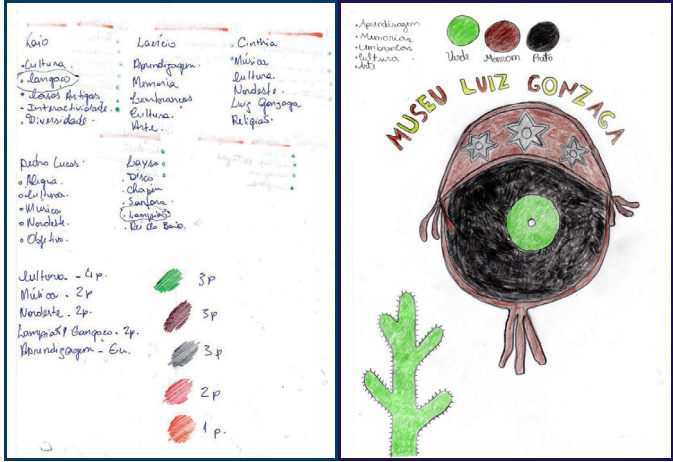 Kaio
• Cultura
• Cangaço
• Coisas Antigas
• Interactividade
• Diversidade
Laercio
Aprendizagem
Memoria
Lembrancas
Cultura
Arte
• Cinthia
Música
Cultura
Nordeste
Luiz Gonzaga
Religião
Pedro Lucas
• Alegria
• Cultura
• Musica
• Nordeste
• Objetivo
Laysa
• Disco
• Chapeu
• Sanfona
• Lampião
• Rei do Baião
Cultura - 4 p.
Música - 2 p
Nordeste - 2 p.
Lampião / Cangaco - 2 p.
Aprendizagem -
3 p
3 p
3 p
2 p
1 p.
• Aprendisagem
• Memorias
• Lembrancas
• Cultura
• Arte
Verde
Marrom
Preto
MUSEU LUIZ GONZAGA